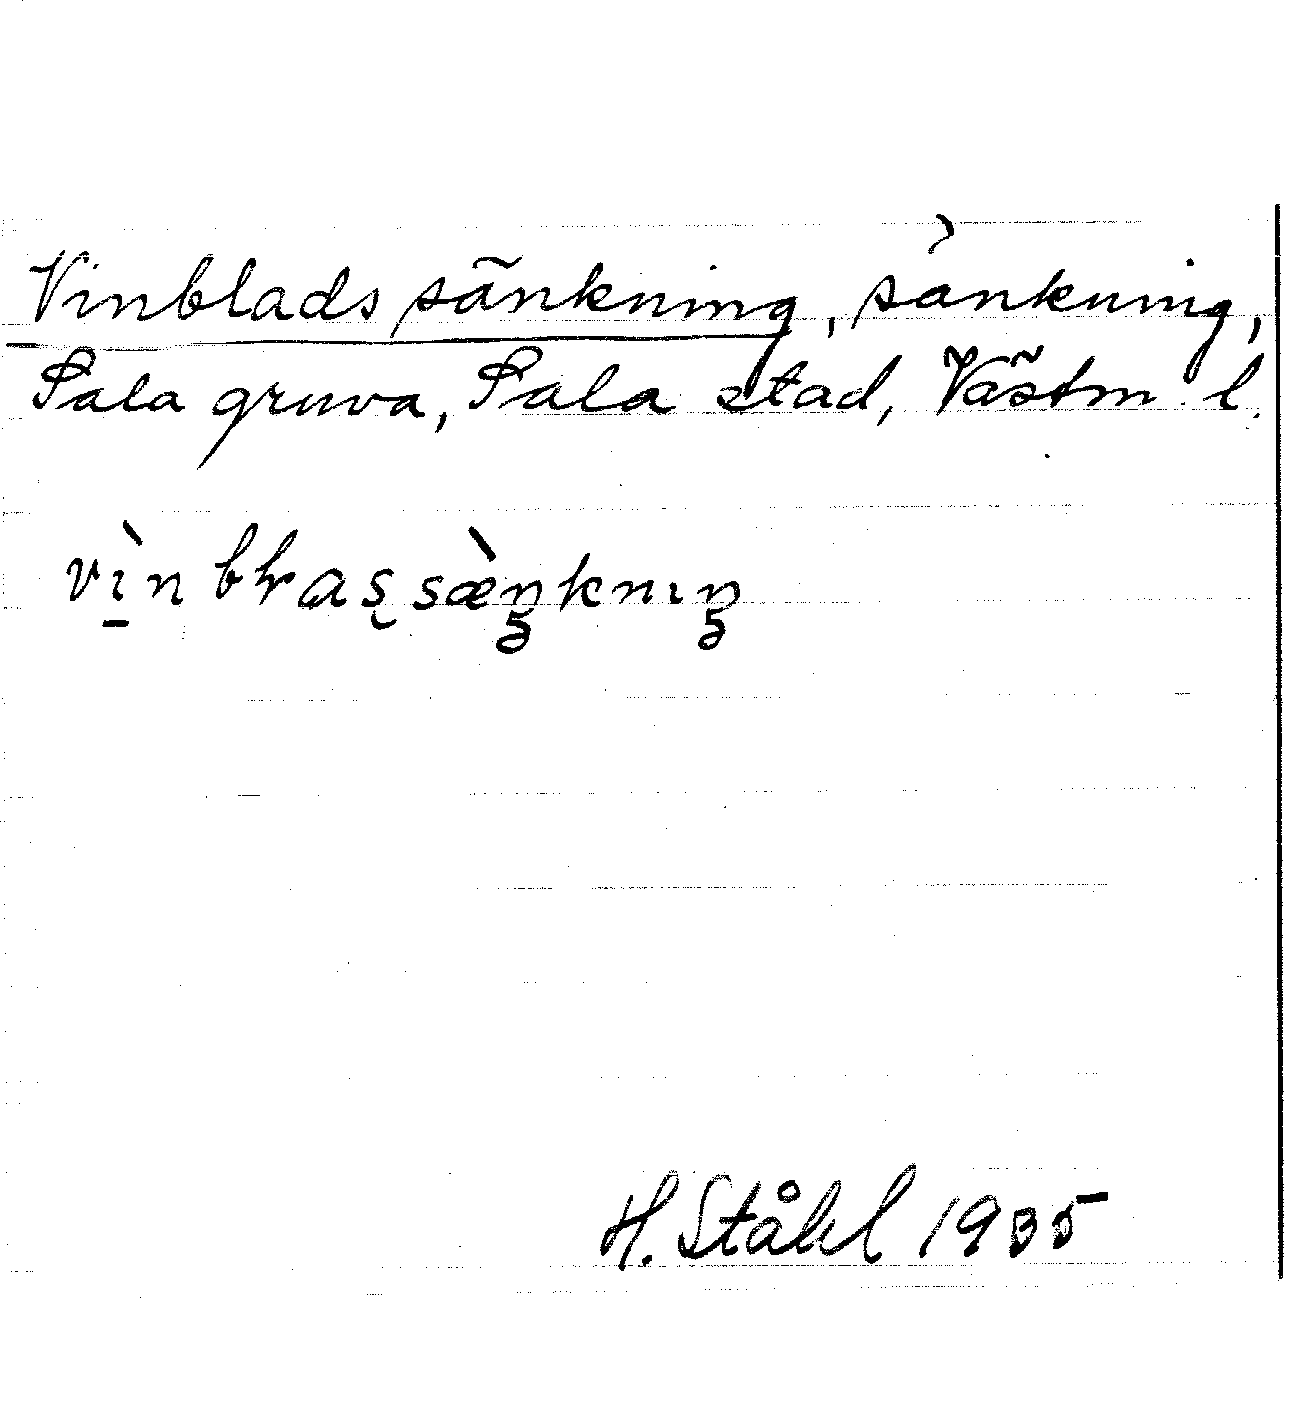 Vinblads sänkning, sänkning,
Sala gruva, Sala stad, Västm. l.
vìnbłas̨sæ̀ŋknıŋ
H. Ståhl 1935